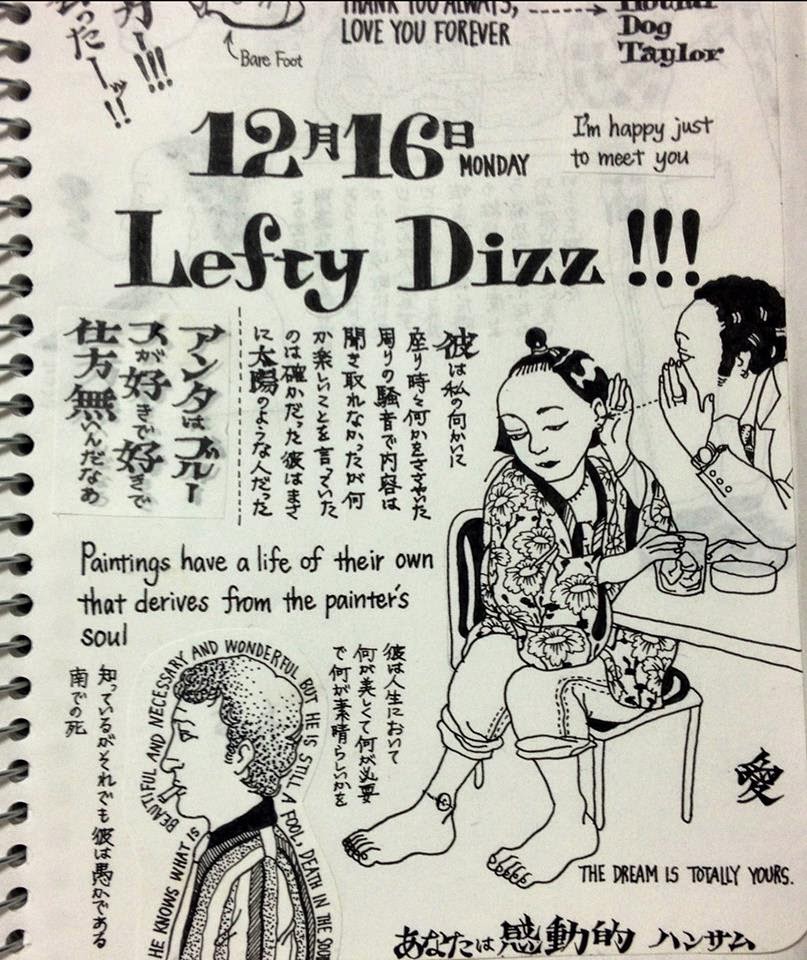 THANK YOU ALWAYS,
LOVE YOU FOREVER
Hound
Dog
Taylor
Bare Foot
ったーッ!!
ー!!!
12月16日 MONDAY
I'm happy just
to meet you
Lefty Dizz!!!
彼は私の向かいに
座り時々何かをささやいた
周りの騒音で内容は
聞き取れなかったが何
か楽しいことを言っていた
のは確かだった彼はまさ
に太陽のような人だった
アンタはブルー
スが好きで好きで
仕方無いんだなあ
Paintings have a life of their own
that derives from the painter's
soul
彼は人生において
何が美しくて何が必要
で何が素晴らしいかを
知っているがそれでも彼は愚かである
南での死
HE KNOWS WHAT IS BEAUTIFUL AND NECESSARY AND WONDERFUL BUT HE IS STILL A FOOL, DEATH IN THE SOU
愛
THE DREAM IS TOTALLY YOURS.
あなたは感動的 ハンサム